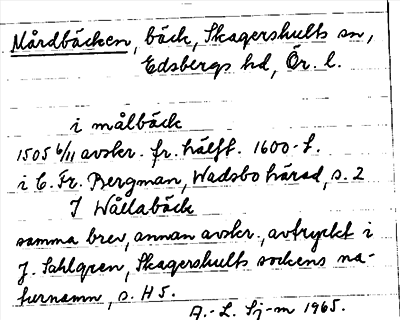 Mårdbäcken, bäck, Skagershults sn,
Edsbergs hd, Ör. l.
i målbäck
1505 6/11 avskr. fr. hälft. 1600-t.
i C. Fr. Bergman, Wadsbo härad, s. 2
J Wållabäck
samma brev, annan avskr., avtryckt i
J. Sahlgren, Skagershults sockens na-
turnamn, s. H5.
A.-L. Sj-m 1965.